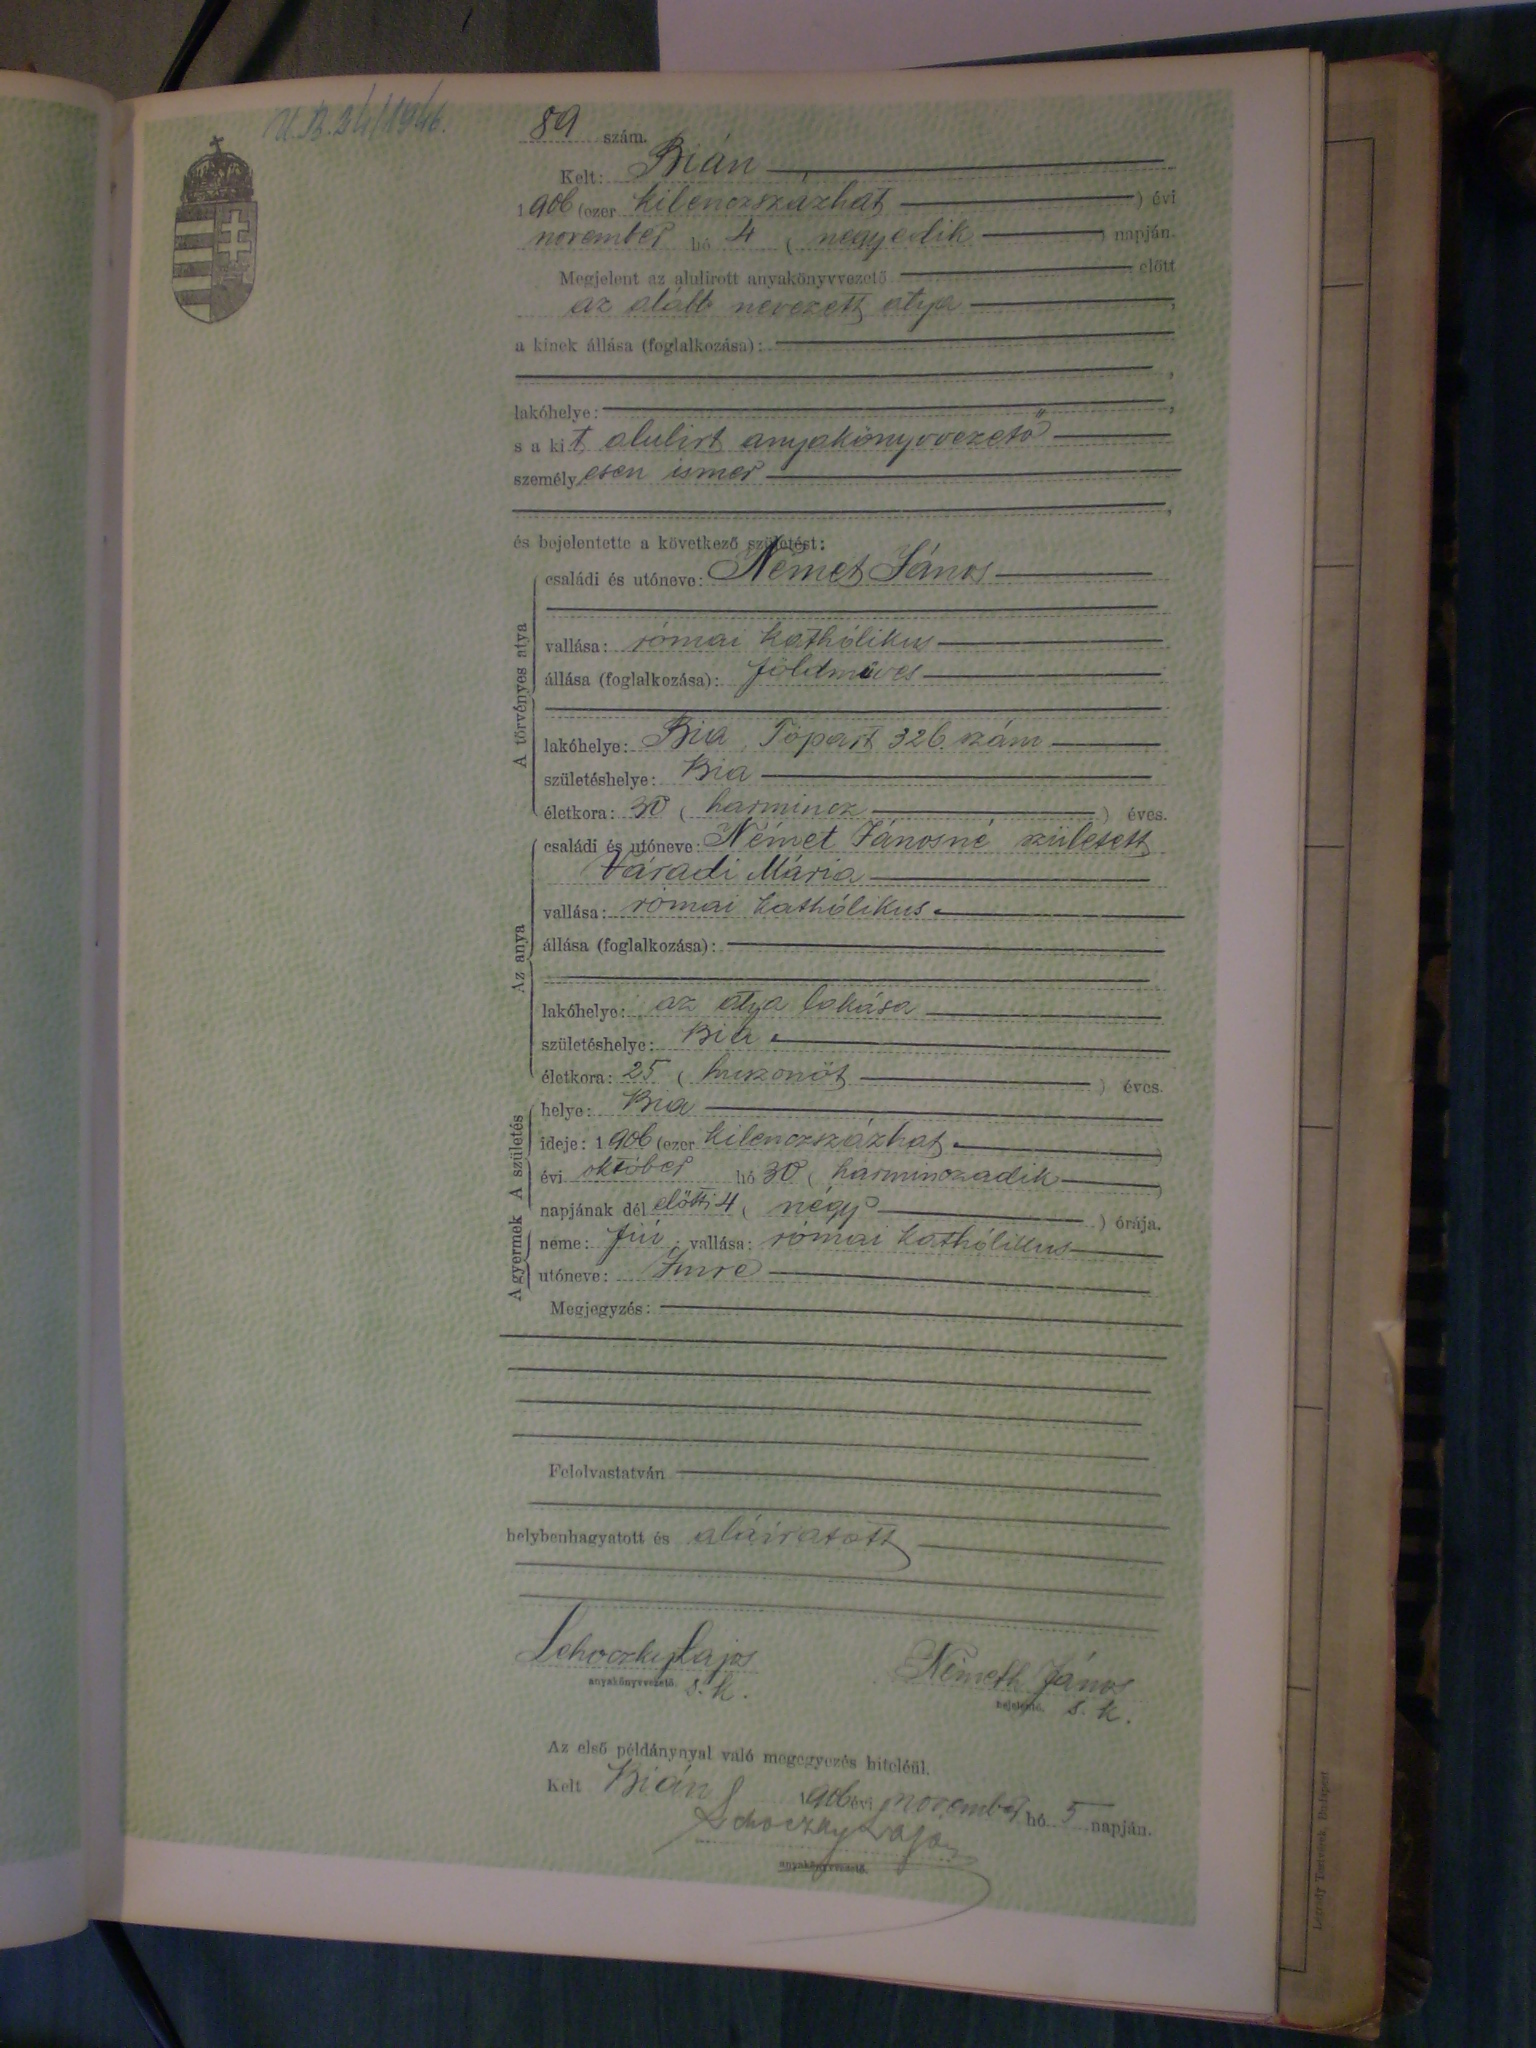 89 szám.
Kelt: Bián
1906 (ezer kilenczszázhat) évi
november hó 4 (negyedik) napján.
Megjelent az alulírott anyakönyvvezető előtt
az alább nevezett atya,
a kinek állása (foglalkozása):
,
lakóhelye: ,
s a kit alulirt anyakönyvvezető
személyesen ismer
,
és bejelentette a következő születést:
A törvényes atya
családi és utóneve: Német János
vallása: római kathólikus
állása (foglalkozása): földmüves
lakóhelye: Bia, Tópart 326. szám
születéshelye: Bia
életkora: 30 (harmincz) éves.
Az anya
családi és utóneve: Német Jánosné született
Váradi Mária
vallása: római kathólikus
állása (foglalkozása):
lakóhelye: az atya lakása
születéshelye: Bia
életkora: 25 (huszonöt) éves.
A születés
helye: Bia
ideje: 1906 (ezer kilenczszázhat)
évi október hó 30 (harminczadik)
napjának dél előtti 4 (négy) órája.
A gyermek
neme: fiú; vallása: római kathólikus
utóneve: Imre
Megjegyzés:
Felolvastatván
helybenhagyatott és aláiratott
Lajos Németh János
anyakönyvvezető. s. k. bejelentő. s. k.
Az első példánynyal való megegyezés hiteléül.
Kelt Bián 1906 évi november hó 5 napján.
Lajos
anyakönyvvezető.